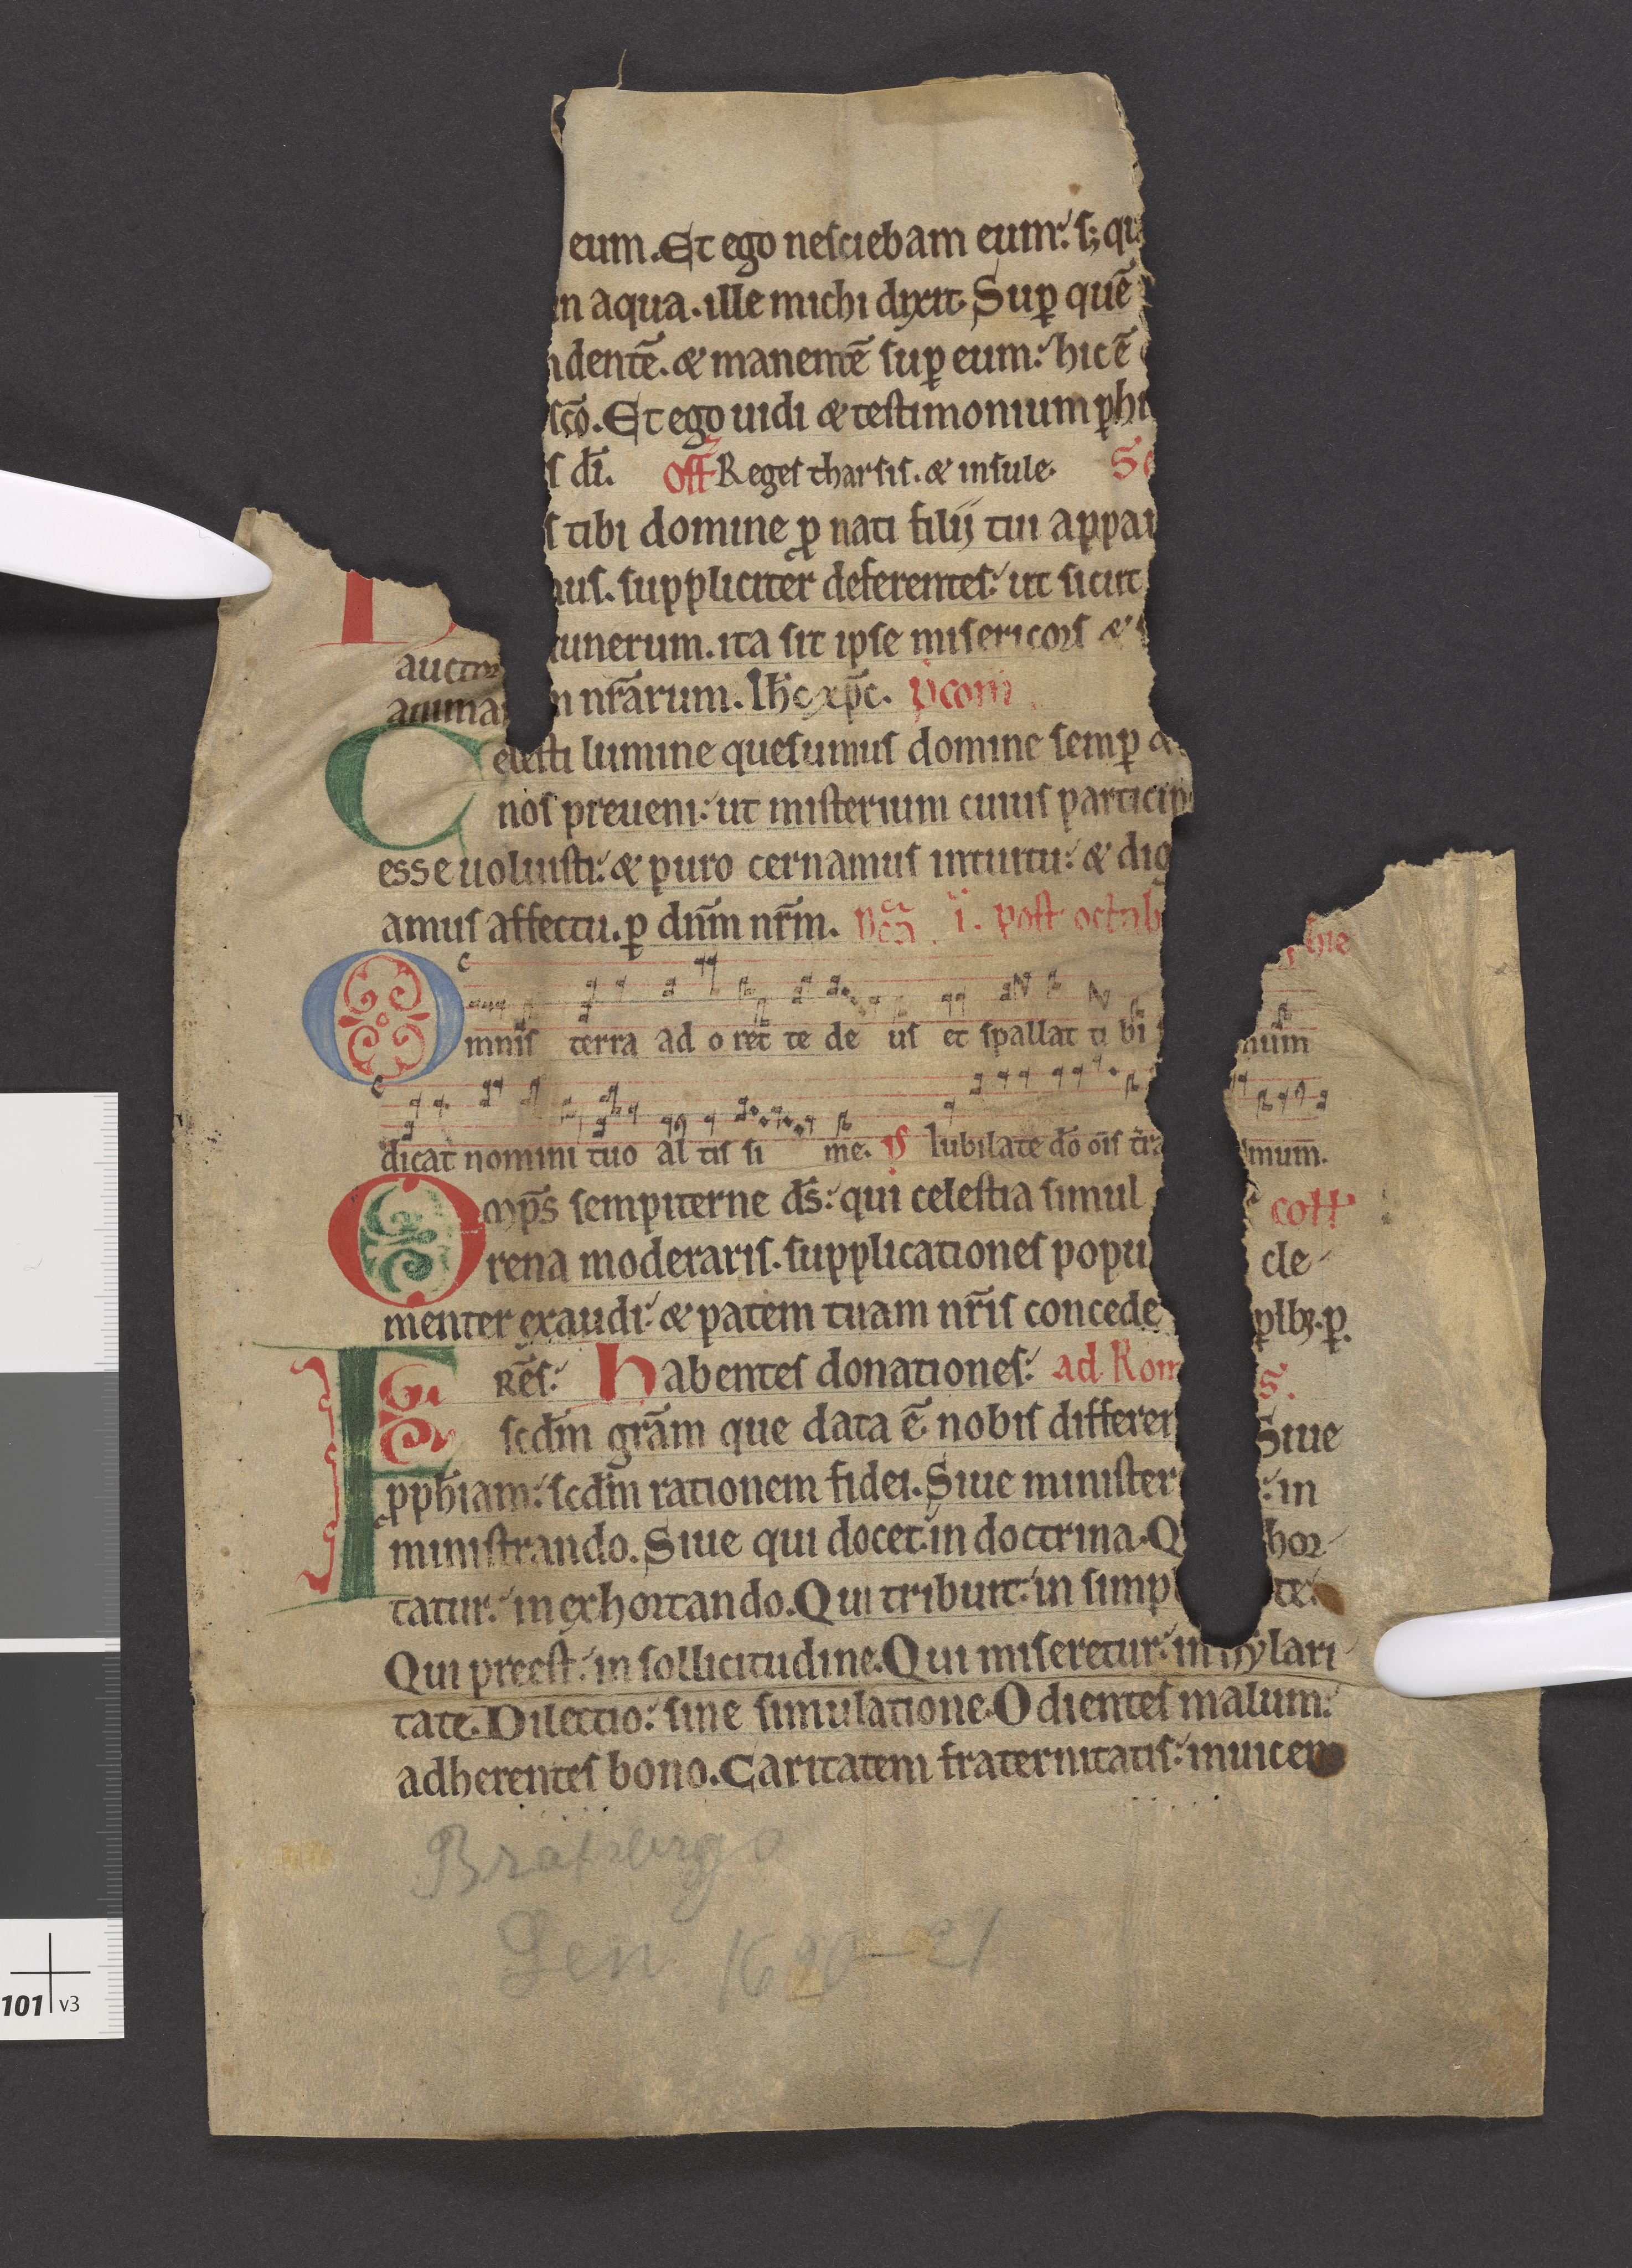 eum. Et ego nesciebam eum: s; qu
n aqua. ille michi dixit. Sup̄ quē
ndentē. & manentē sup̄ eum: hic ē
sc̄o. Et ego uidi & testimonium phi
s dī. Off Reges tharsis. & insule. Se
s tibi domine p̄ nati filij tui appar
mus. suppliciter deferentes: ut sicut
aucto munerum. ita sit ipse misericors &
animar m nr̄arum. Ih̄c xp̄c. pcom
Celesti lumine quesumus domine semp̄ &
nos preueni: ut misterium cuius particip
esse uoluisti: & puro cernamus intuitu: & dig
amus affectu. p̄ dn̄m nr̄m. i. post octab hie
Omnis terra ad o ret te de us et spallat ti bi num
dicat nomini tuo al tis si me. ps Iubilate dō oīs tr̄a mum.
Omp̄s sempiterne ds̄: qui celestia simul coll
rena moderaris. supplicationes popu cle
menter exaudi: & pacem tuam nr̄is concede p̄lbȝ. p̄.
FRēs: Habentes donationes: ad Rom s.
scdm̄ gr̄am que data ē nobis differen Siue
pph̄iam: scdm̄ rationem fidei. Siue minister : in
ministrando. Siue qui docet: in doctrina. Q hor
tatur: in exhortando. Qui tribuit: in simpl te.
Qui preest: in sollicitudine. Qui miseretur: in hylari
tate. Dilectio: sine simulatione. Odientes malum:
adherentes bono. Caritatem fraternitatis: inuicem
Gen 1620-21
101 v3